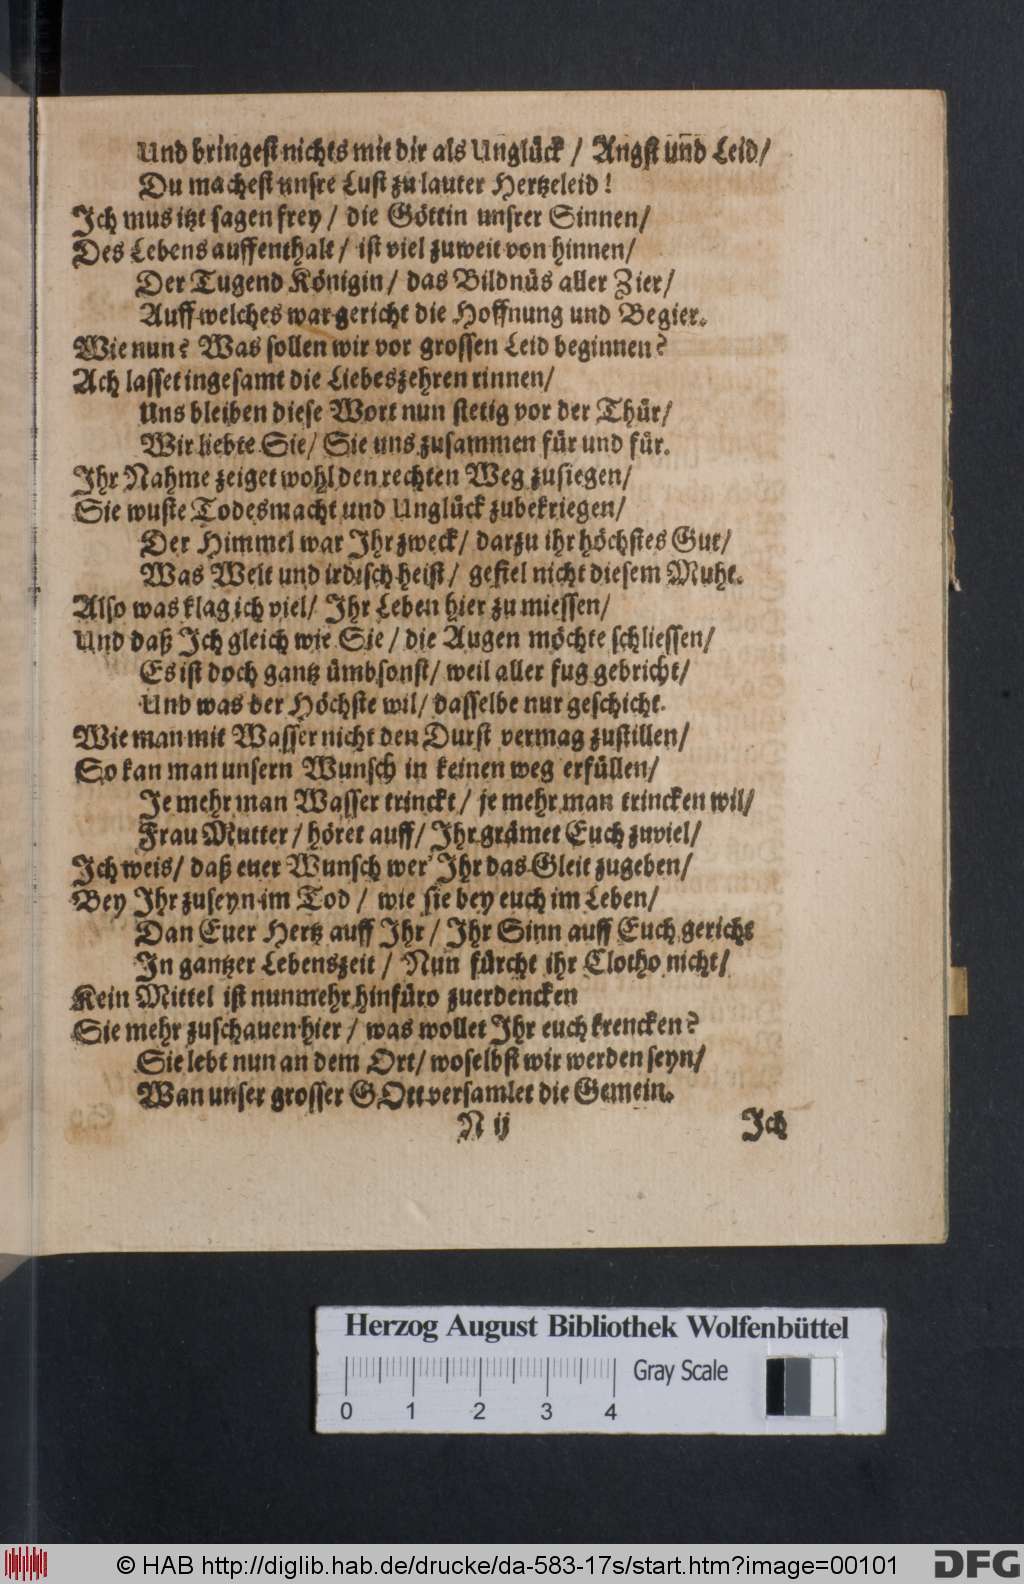 Und bringest nichts mit dir als Unglück / Angst und Leid/
Du machest unsre Lust zu lauter Hertzeleid!
Ich mus itzt sagen frey / die Göttin unsrer Sinnen/
Des Lebens auffenthalt / ist viel zuweit von hinnen/
Der Tugend Königin / das Bildnüs aller Zier/
Auff welches war gericht die Hoffnung und Begier.
Wie nun? Was sollen wir vor grossen Leid beginnen?
Ach lasset ingesamt die Liebeszehren rinnen/
Uns bleiben diese Wort nun stetig vor der Thür/
Wir liebte Sie/ Sie uns zusammen für und für.
Ihr Nahme zeiget wohl den rechten Weg zusiegen/
Sie wuste Todesmacht und Unglück zubekriegen/
Der Himmel war Ihr zweck/ darzu ihr höchstes Gut/
Was Welt und irdisch heist / gefiel nicht diesem Muht.
Also was klag ich viel/ Ihr Leben hier zu miessen/
Und daß Ich gleich wie Sie / die Augen möchte schliessen/
Es ist doch gantz ümbsonst/ weil aller fug gebricht/
Und was der Höchste wil/ dasselbe nur geschicht.
Wie man mit Wasser nicht den Durst vermag zustillen/
So kan man unsern Wunsch in keinen weg erfüllen/
Je mehr man Wasser trinckt / je mehr man trincken wil/
Frau Mutter / höret auff/ Ihr grämet Euch zuviel/
Ich weis/ daß euer Wunsch wer' Ihr das Gleit zugeben/
Bey Ihr zuseyn im Tod / wie sie bey euch im Leben/
Dan Euer Hertz auff Ihr / Ihr Sinn auff Euch gericht
In gantzer Lebenszeit / Nun fürcht ihr Clotho nicht/
Kein Mittel ist nunmehr hinfüro zuerdencken
Sie mehr zuschauen hier / was wollet Ihr euch krencken?
Sie lebt nun an dem Ort/ woselbst wir werden seyn/
Wan unser grosser GOtt versamlet die Gemein.
N ij Ich
Herzog August Bibliothek Wolfenbüttel
Gray Scale
0 1 2 3 4
© HAB http://diglib.hab.de/drucke/da-583-17s/start.htm?image=00101
DFG